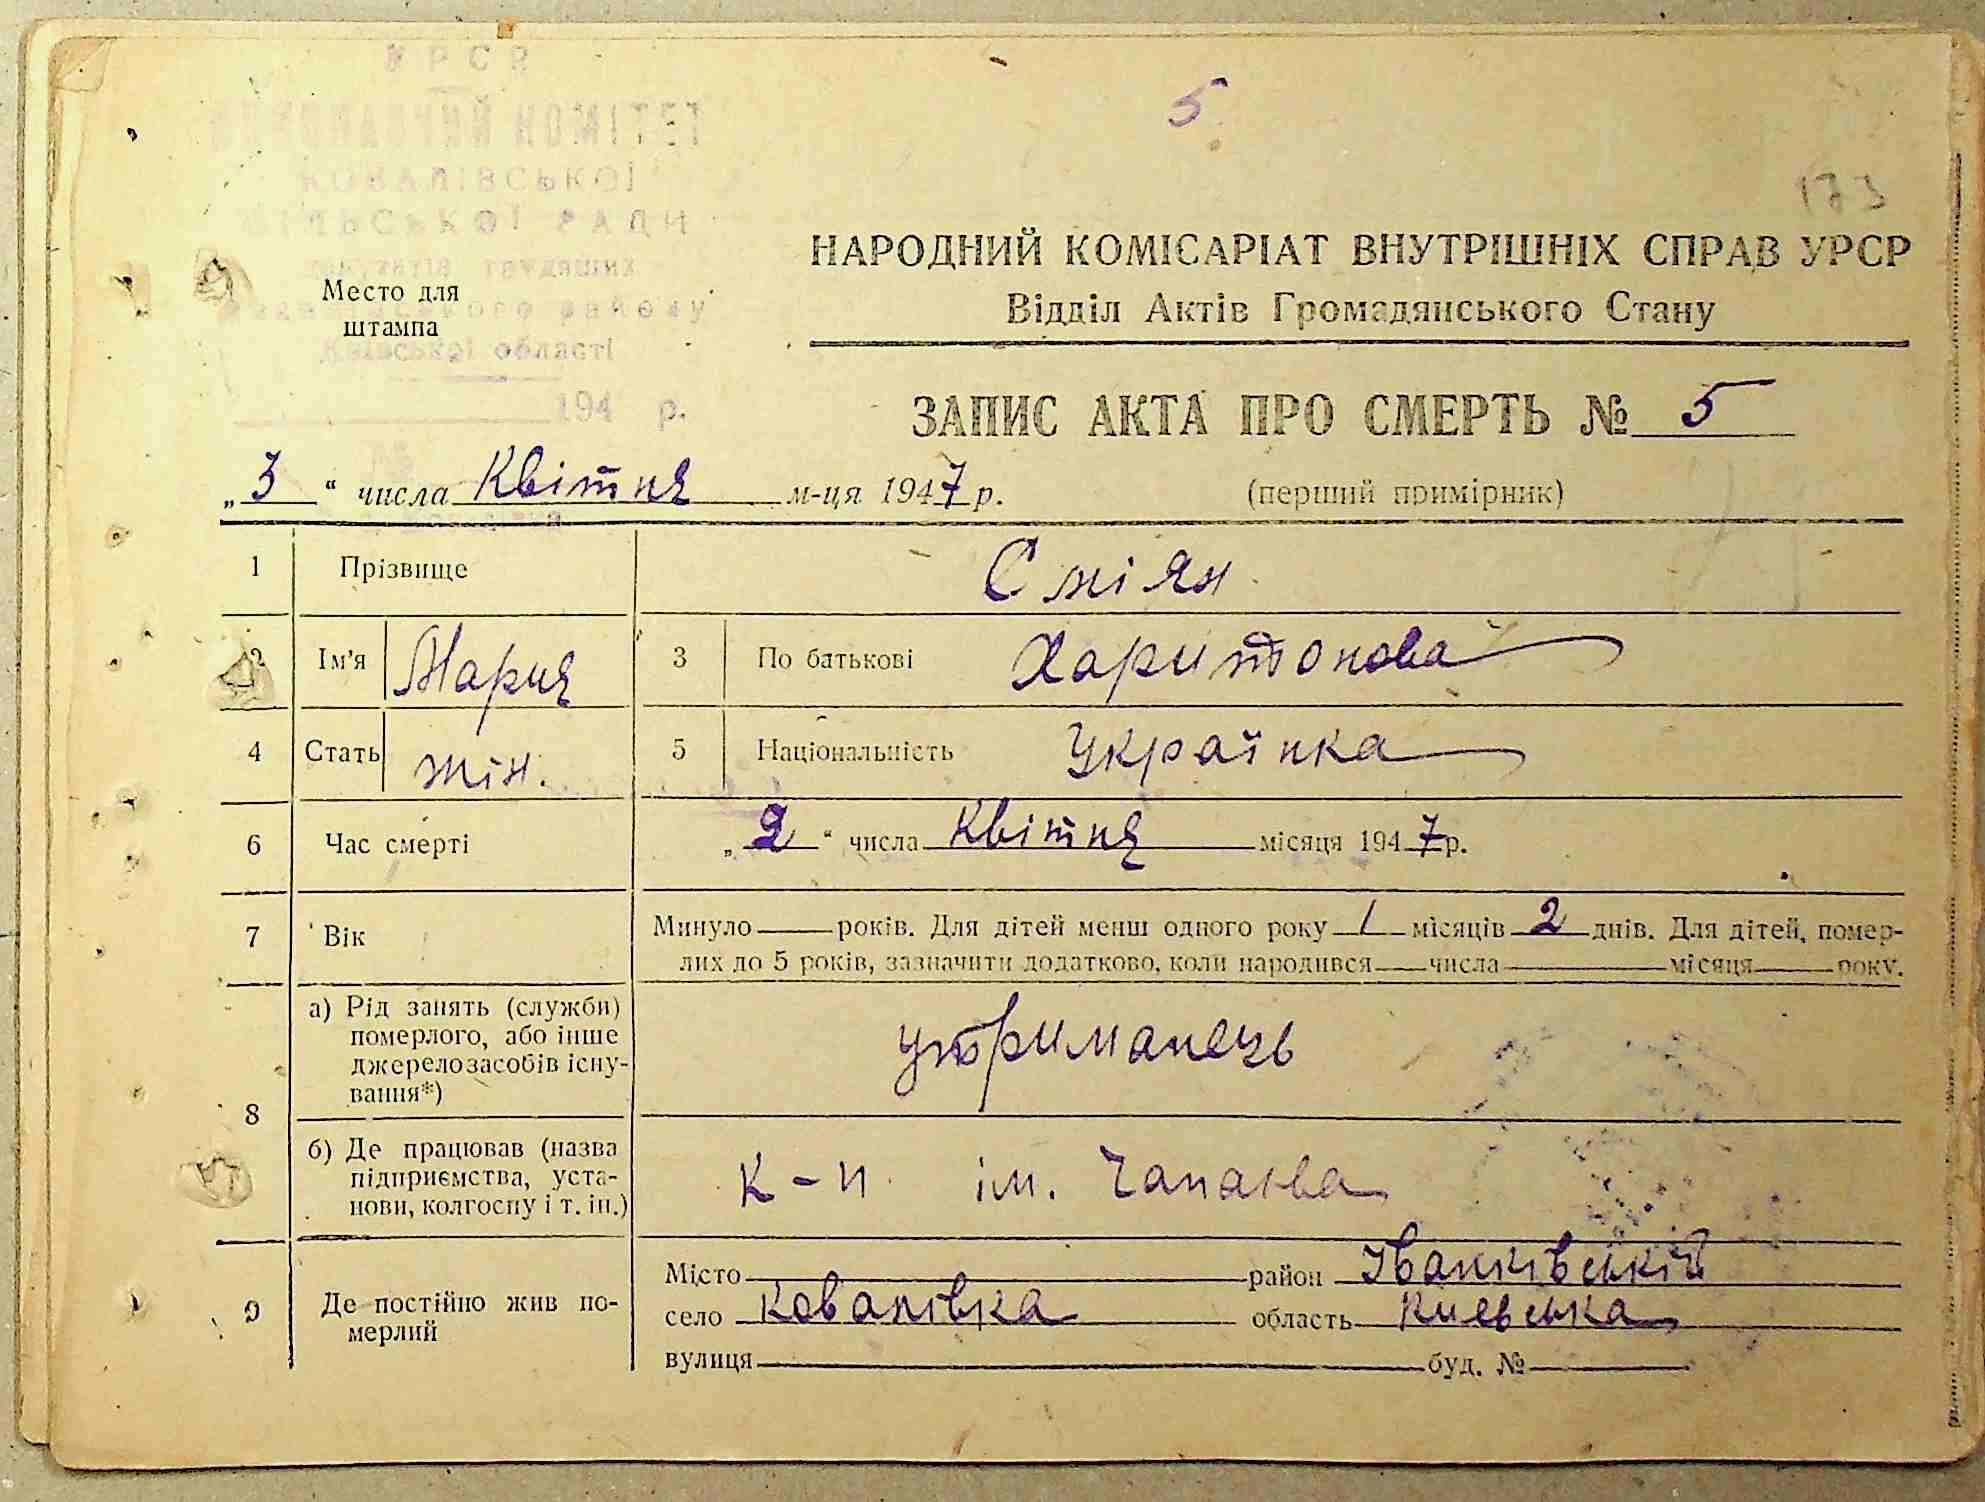 УРСР
ВИКОНАВЧИЙ КОМІТЕТ
КОВАЛІВСЬКОЇ
СІЛЬСЬКОЇ РАДИ
депутатів трудящих
Іванківського району
Київської області
194 р.
№
5
173
Место для
штампа
НАРОДНИЙ КОМІСАРІАТ ВНУТРІШНІХ СПРАВ УРСР
Відділ Актів Громадянського Стану
ЗАПИС АКТА ПРО СМЕРТЬ № 5
„3“ числа Квітня м-ця 1947 р.
(перший примірник)
1 Прізвище Сміян
2 Ім'я Мария 3 По батькові Харитонова
4 Стать жін. 5 Національність Українка
6 Час смерті „2“ числа Квітня місяця 1947 р.
7 Вік Минуло — років. Для дітей менш одного року 1 місяців 2 днів. Для дітей, помер-
лих до 5 років, зазначити додатково, коли народився числа місяця року.
8 а) Рід занять (служби)
померлого, або інше
джерело засобів існу-
вання*)
утриманець
б) Де працював (назва
підприємства, уста-
нови, колгоспу і т. ін.)
к-п ім. Чапаєва
9 Де постійно жив по-
мерлий
Місто район Іванківській
село Ковалівка область Киевська
вулиця буд. №